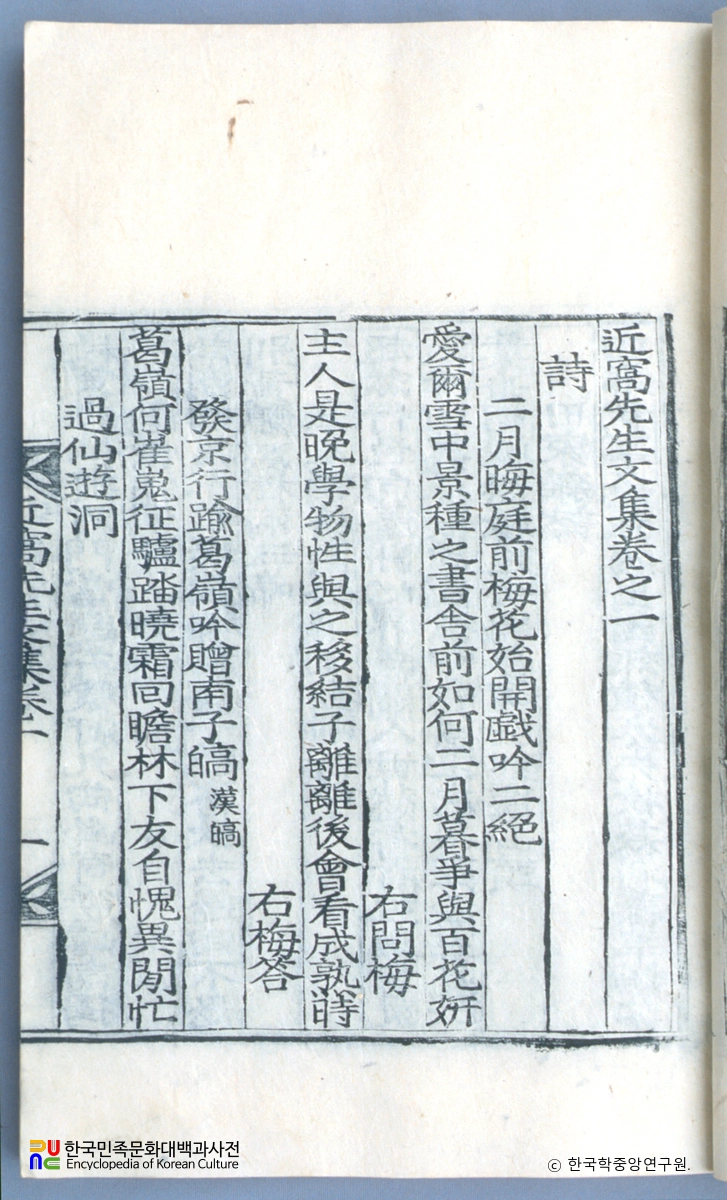 近窩先生文集卷之一
詩
二月晦庭前梅花始開戱吟二絕
愛爾雪中景種之書舍前如何二月暮爭與百花姸
右問梅
主人是晩學物性與之移結子離離後會看成孰時
右梅答
發京行踰葛嶺吟贈南子皜 漢皜
葛嶺何崔嵬征驢踏曉霜回瞻林下友自愧異閒忙
過仙遊洞
近窩先生文集卷一
一
한국민족문화대백과사전
Encyclopedia of Korean Culture
ⓒ 한국학중앙연구원.